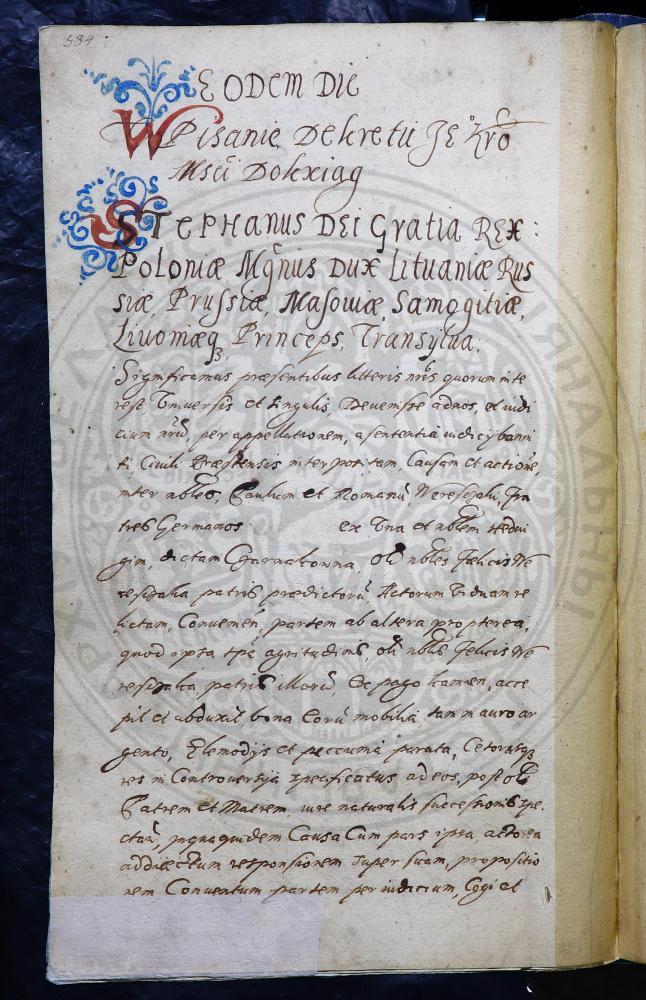 534
EODEM DIE
WPisanie Dekretu JE° Kro
Msći Doksiąg
STEPHANUS DEI Gratia REX:
Poloniæ Mgnus Dux Lituaniæ Rus
siæ, Prussiæ, Masoviæ, Samogitiæ,
Livoniæq3 Princeps, Transylua:
Significamus præsentibus litteris nris quorum inte
rest Universis et singulis, Devenisse ad nos, et iudi
cium nrum, per appellationem, a sententia iudicÿ banni
ti, Civili interpositam, Causam et actione,
inter nobles, Paulum et Romanu, fra
tres Germanos ex Una et noblem Hedui
gim, dictam Czarnakowna, oli nobles Fœlicis We
reszaka patris prædictoru Actorum Viduam re
lictam, Conuenem, partem ab altera, propterea,
quod ipsa tpe ægritudinis, oli noblis Felicis We
reszaka, patris illoru, Ex pago kamien, acce
pit et abduxit bona Eoru mobilia tam in auro ar
gento, Elemodijs et peccunia parata, Cetorasq3
res in Controversia specificatas ad eos, post oli
Patrem et Matrem, iure naturalis successionis spe
ctan, in qua quidem Causa Cum pars ipsa, actorea
ad directum responsionem super suam, propositio
nem Conventam partem per iudicium, Cogi et